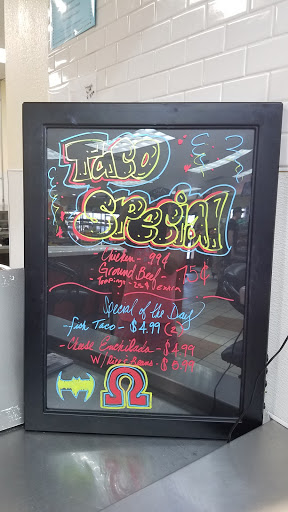 Taco
Special
- Chicken - 99¢
- Ground Beef - 75¢
- Toppings - 25¢ / extra
Special of the Day
- Fish Taco - $4.99 (2)
- Chase Enchilada - $4.99
W/ Rice Beans - $5.99
Ω